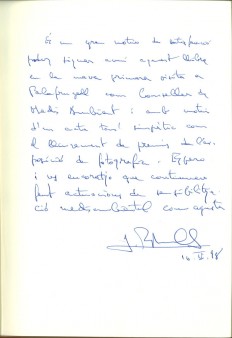 És un gran motiu de satisfacció
poder signar avui aquest llibre
en la meva primera visita a
Palafrugell com Conseller de
Medi Ambient: amb motiu
d'un acte tan simpàtic com
el lliurament de premis de l'ex-
posició de fotografia. Espero
i us encoratjo que continueu
fent actuacions de sensibilitza-
ció mediambiental com aquesta